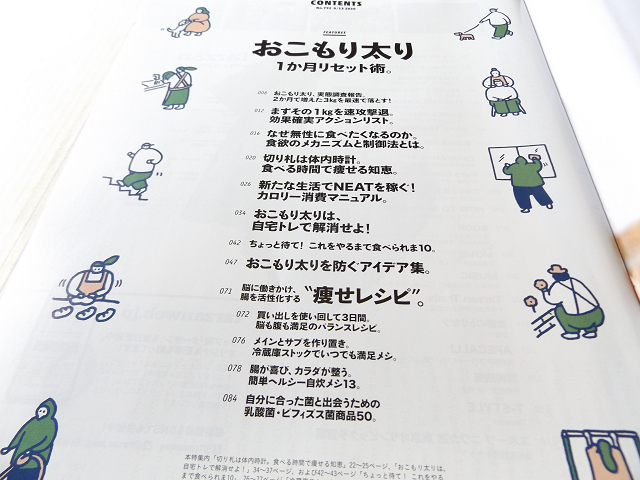 CONTENTS
FEATURES
おこもり太り
1か月リセット術。
008 おこもり太り、実態調査報告。
2か月で増えた3kgを最速で落とす!
012 まずその1kgを速攻撃退。
効果確実アクションリスト。
016 なぜ無性に食べたくなるのか。
食欲のメカニズムと制御法とは。
020 切り札は体内時計。
食べる時間で痩せる知恵。
026 新たな生活でNEATを稼ぐ!
カロリー消費マニュアル。
034 おこもり太りは、
自宅トレで解消せよ!
042 ちょっと待て! これをやるまで食べられま10。
047 おこもり太りを防ぐアイデア集。
071 脳に働きかけ、
腸を活性化する
“痩せレシピ”。
072 買い出しを使い回して3日間。
脳も腹も満足のバランスレシピ。
076 メインとサブを作り置き。
冷蔵庫ストックでいつでも満足メシ。
078 腸が喜び、カラダが整う。
簡単ヘルシー自炊メシ13。
084 自分に合った菌と出会うための
乳酸菌・ビフィズス菌商品50。
本特集内「切り札は体内時計。食べる時間で痩せる知恵」22〜25ページ、「おこもり太りは、
自宅トレで解消せよ!」34〜37ページ、および42〜43ページ「ちょっと待て! これをやる
まで食べられま10」